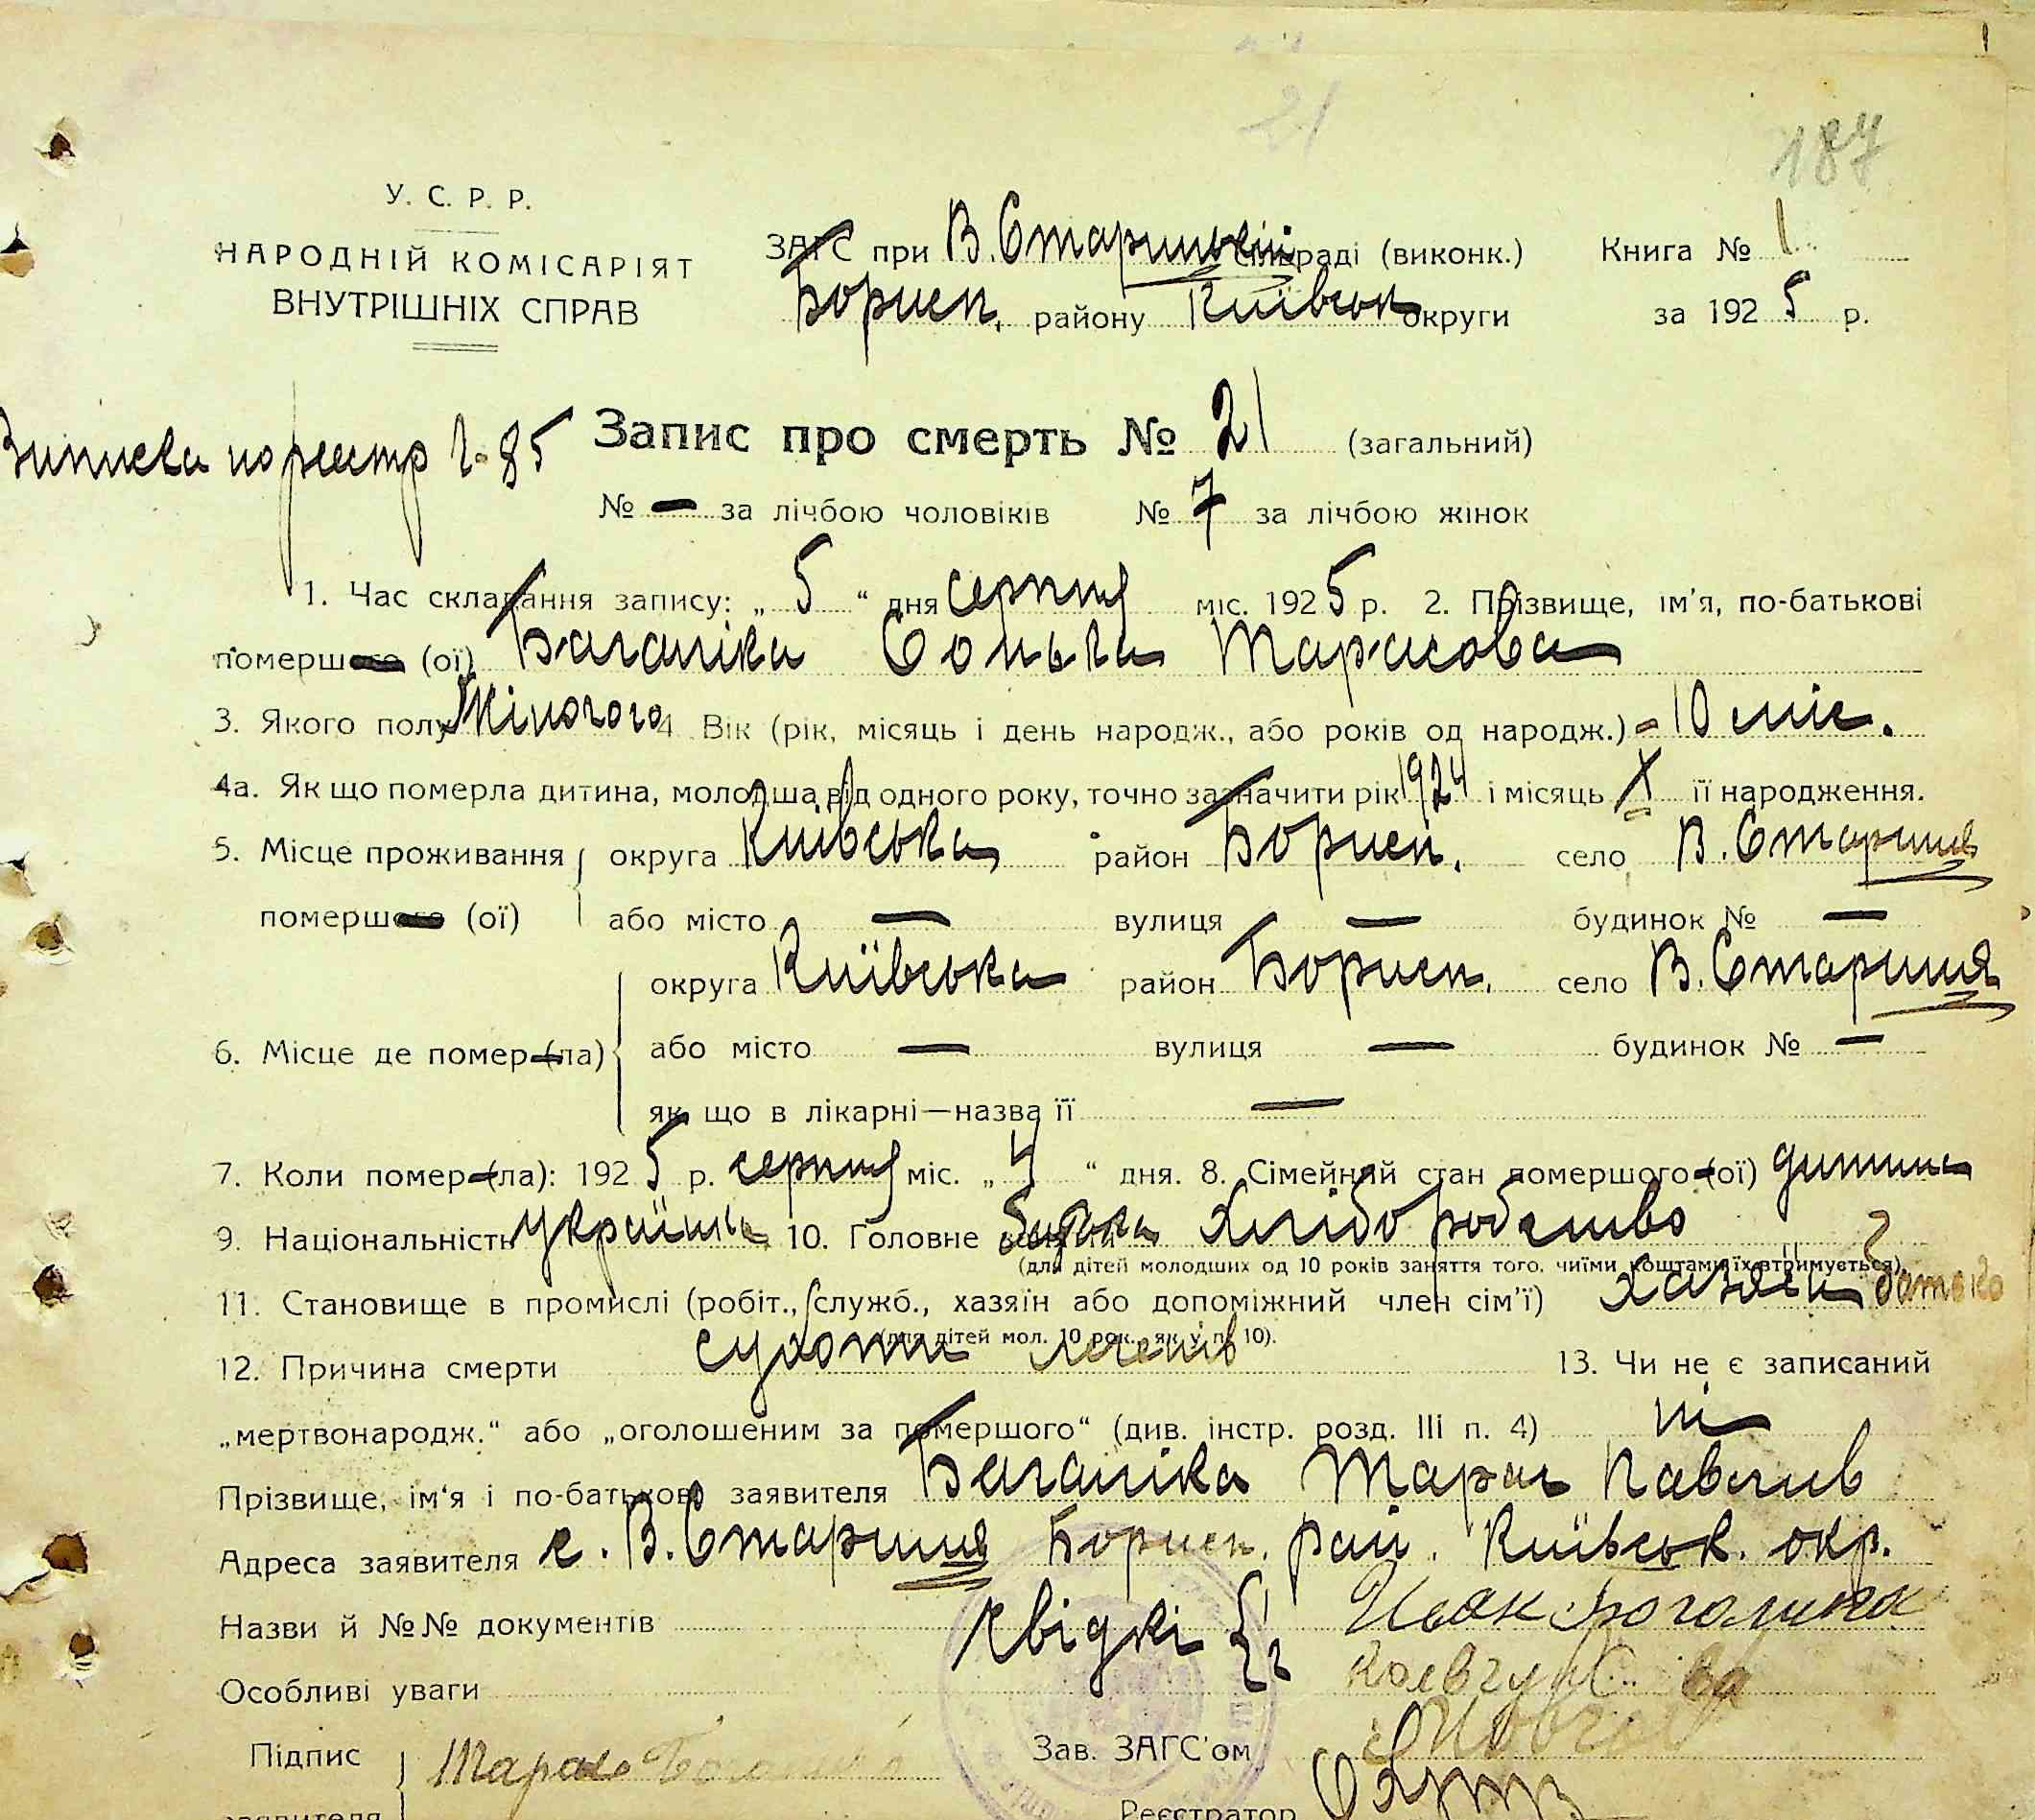 21
187
У. С. Р. Р.
НАРОДНІЙ КОМІСАРІЯТ
ВНУТРІШНІХ СПРАВ
ЗАГС при В. Старицькій сільраді (виконк.) Книга № 1
Борисп. району Київськ округи за 1925 р.
Запис про смерть № 21 (загальний)
Виписка по реєстр 85
№ — за лічбою чоловіків № 7 за лічбою жінок
1. Час складання запису: „ 5 “ дня серпня міс. 1925 р. 2. Прізвище, ім'я, по-батькові
помершого (ої) Багаліка Сонька Тарасова
3. Якого полу Жіночого 4 Вік (рік, місяць і день народж., або років од народж.) - 10 міс.
4а. Як що померла дитина, молодша від одного року, точно зазначити рік 1924 і місяць X її народження.
5. Місце проживання округа Київська район Борисп. село В. Стариця
помершого (ої) або місто — вулиця — будинок № —
округа Київська район Борисп. село В. Стариця
6. Місце де помер (ла) або місто — вулиця — будинок № —
як що в лікарні—назва її —
7. Коли помер (ла): 1925 р. серпня міс. „ 4 “ дня. 8. Сімейний стан помершого (ої) дитина
9. Національність україн. 10. Головне Хліборобство
(для дітей молодших од 10 років заняття того, чиїми коштами їх втримується)
11. Становище в промислі (робіт., служб., хазяїн або допоміжний член сім'ї) хазяїн батько
(для дітей мол. 10 рок. як у п. 10).
12. Причина смерти сухоти легенів 13. Чи не є записаний
„мертвонародж.“ або „оголошеним за помершого“ (див. інстр. розд. III п. 4) ні
Прізвище, ім'я і по-батькові заявителя Багаліка Тарас Павлив
Адреса заявителя с. В. Стариця Борисп. рай. Київськ. окр.
Назви й №№ документів
Свідкі { 1
2
Особливі уваги
Підпис Тарас Зав. ЗАГС'ом
заявителя Реєстратор